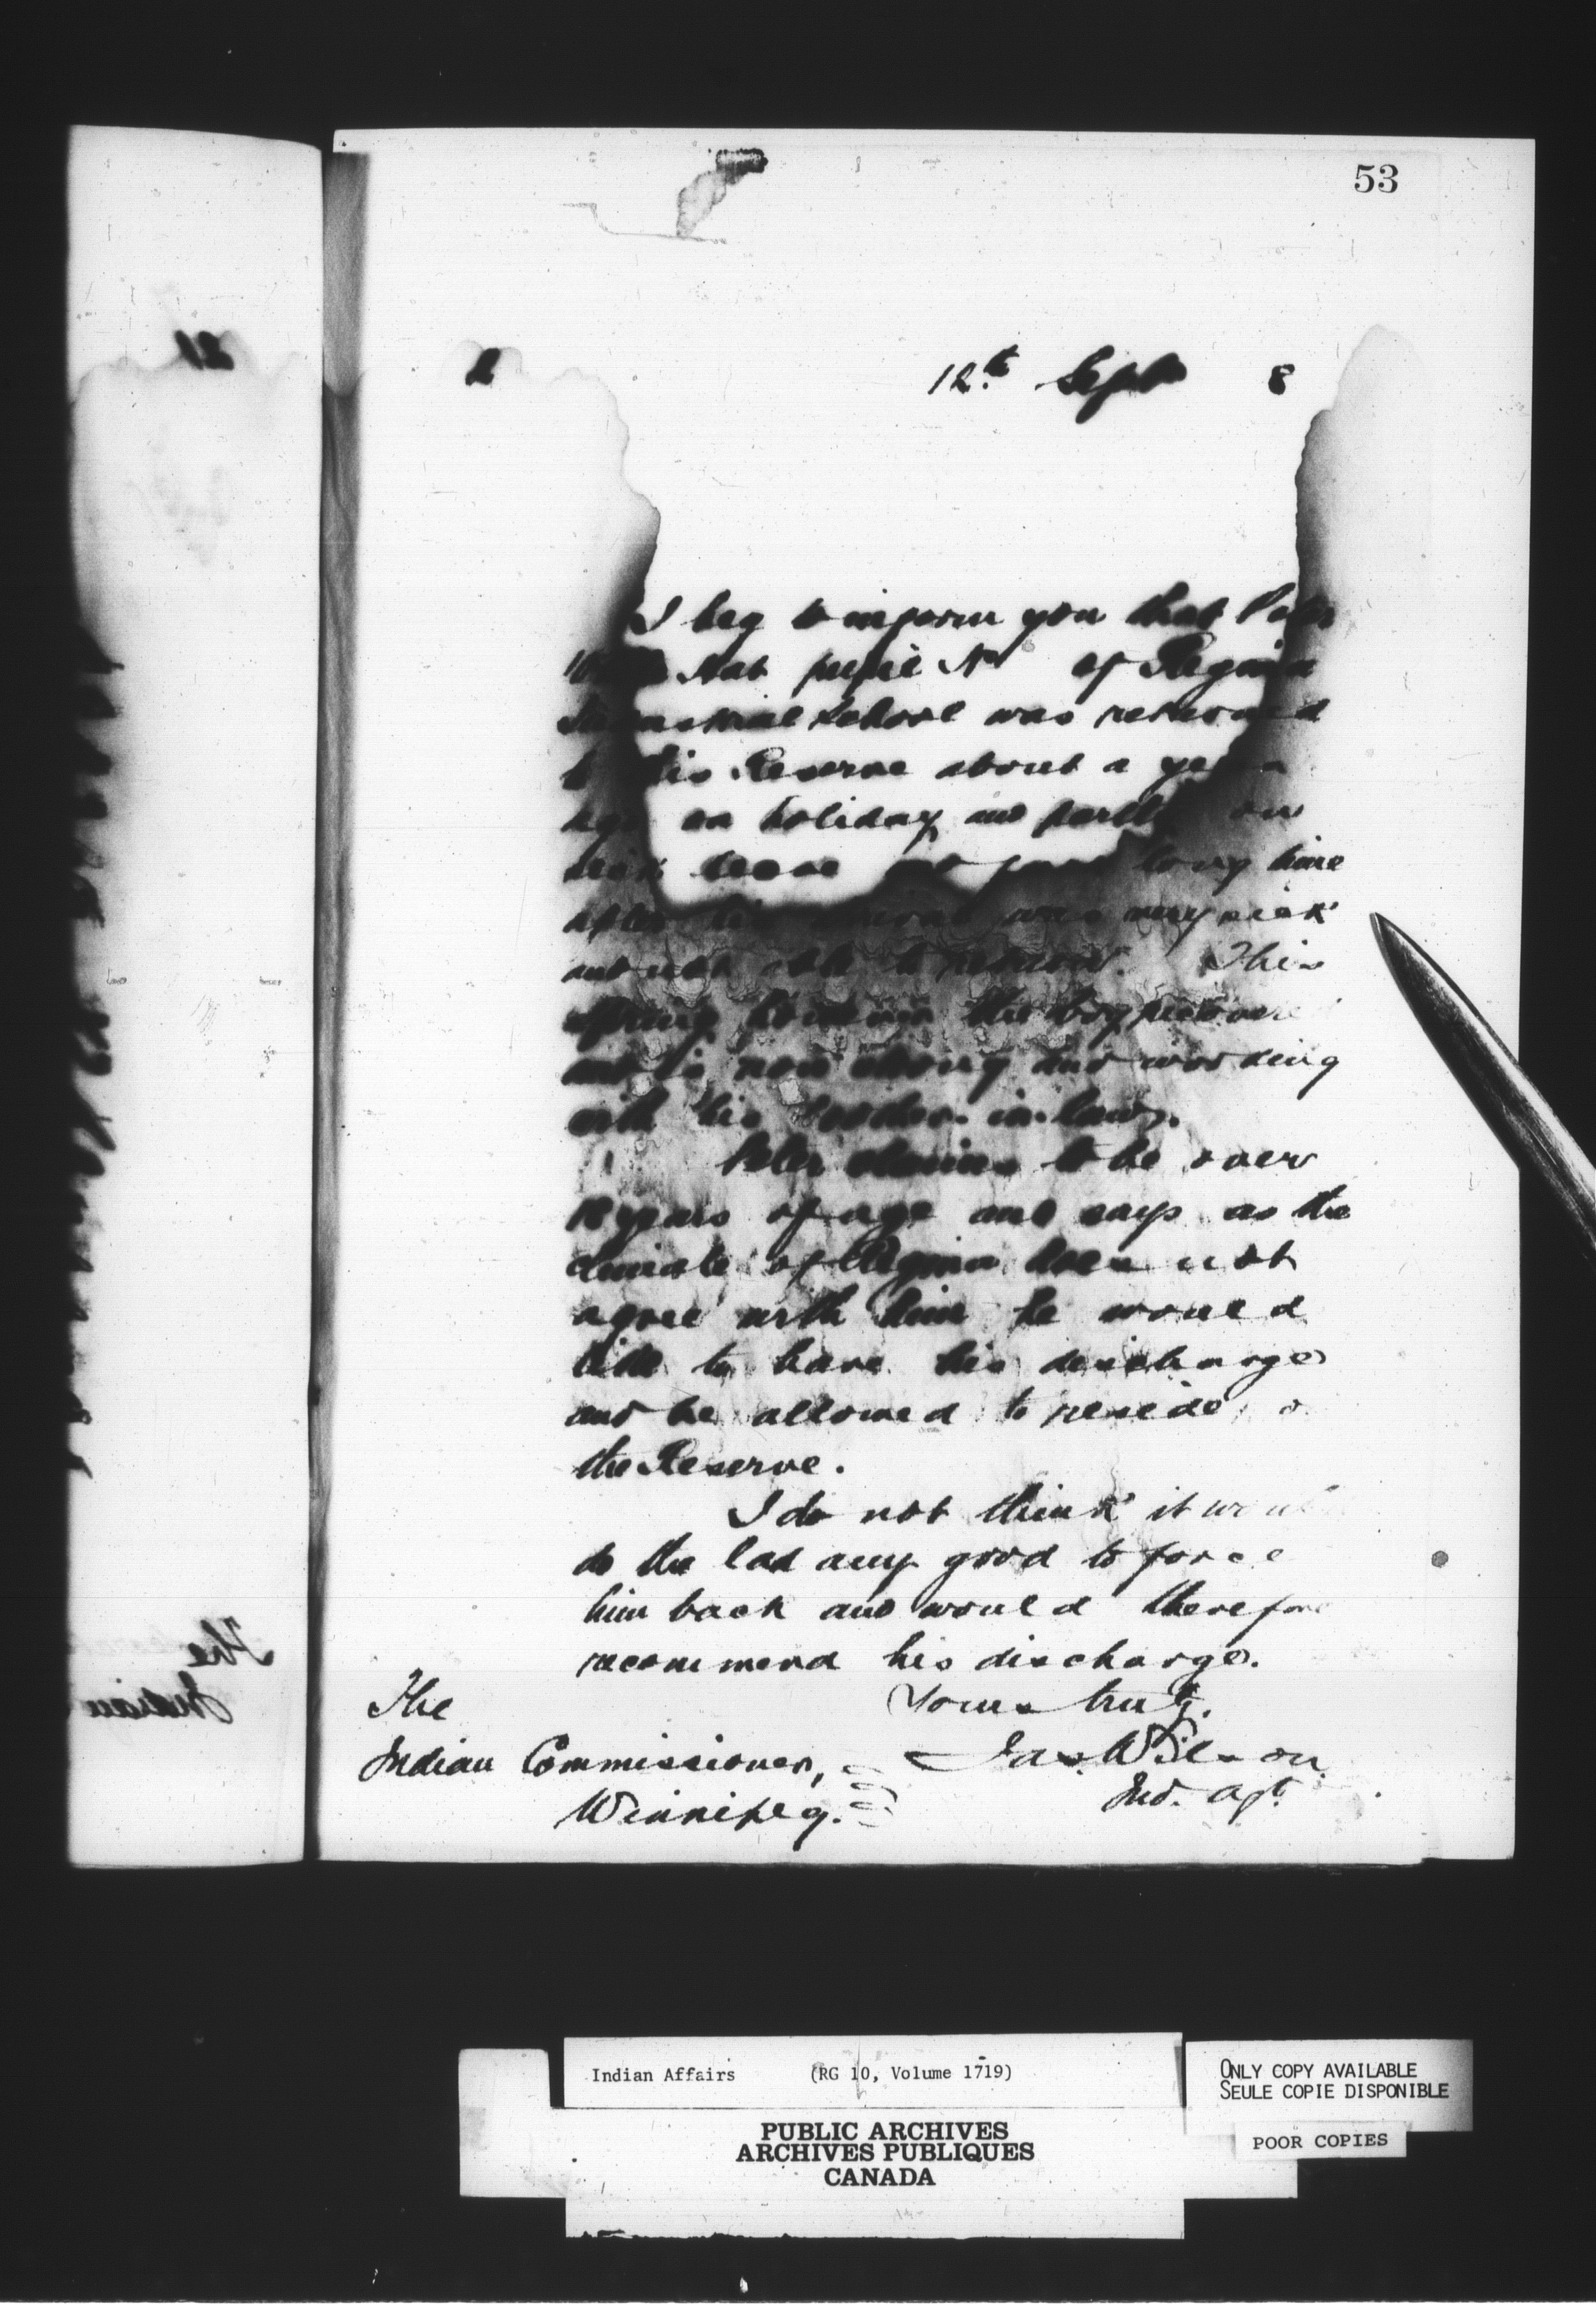 53
2
12th Sept 8
I beg to inform you that Peter
Hat pupil No of Regina
Industrial School was returned
to this Reserve about a year
ago on holiday and partly on
sick leave long time
after his was very sick
and not able to return. This
Spring however the boy recovered
and is now strong and working
with his brother-in-law.
Peter claims to be over
18 years of age and says as the
climate of Regina does not
agree with him he would
like to have his discharge
and be allowed to reside o
the Reserve.
I do not think it would
do the lad any good to force
him back and would therefore
recommend his discharge.
Yours truly,
Jas. Wilson
Ind. Agt.
The
Indian Commissioner,
Winnipeg.
21
The
Indian
Indian Affairs (RG 10, Volume 1719)
ONLY COPY AVAILABLE
SEULE COPIE DISPONIBLE
POOR COPIES
PUBLIC ARCHIVES
ARCHIVES PUBLIQUES
CANADA